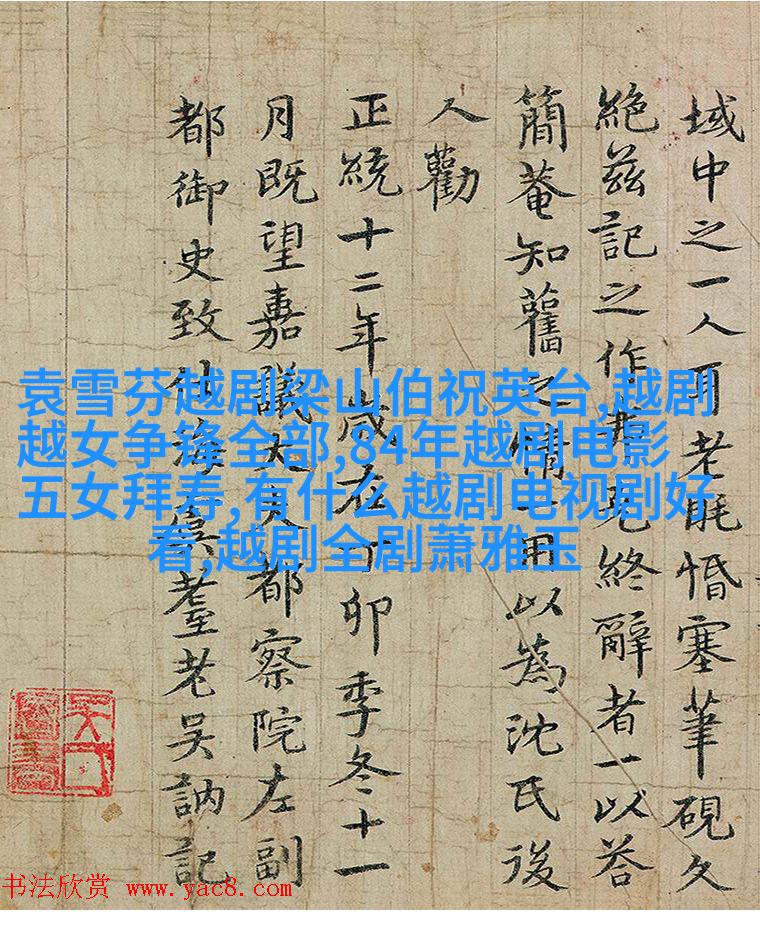 域中之一人耳老眊惛塞筆硯久
絶兹記之作終辭者一以荅
簡菴知舊之情一用以為沈氏後
人勸
正統十二年歲在丁卯季冬十一
月既望嘉議大夫都察院左副
都御史致仕海虞耋老吳訥記
袁雪芬越剧梁山伯祝英台,越剧
越女争锋全部,84年越剧电影
五女拜寿,有什么越剧电视剧好
看,越剧全剧萧雅玉
书法欣赏 www.yac8.com